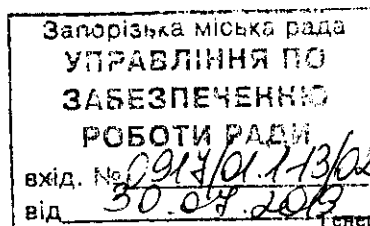 Запорізька міська рада
УПРАВЛІННЯ ПО
ЗАБЕЗПЕЧЕННЮ
РОБОТИ РАДИ
вхід. № 0917/01.1-13/02
від 30.07.2019